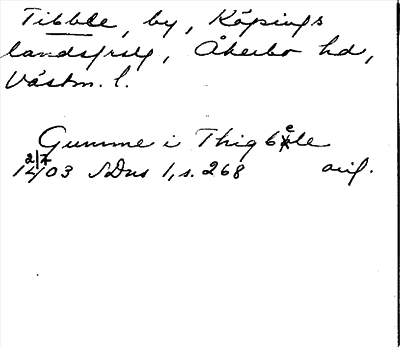 Tibble, by, Köpings
landsfrsg, Åkerbo hd,
Västm. l.
Gumme i Thigbele
2/7
1403 SDns 1, s. 268 avl.